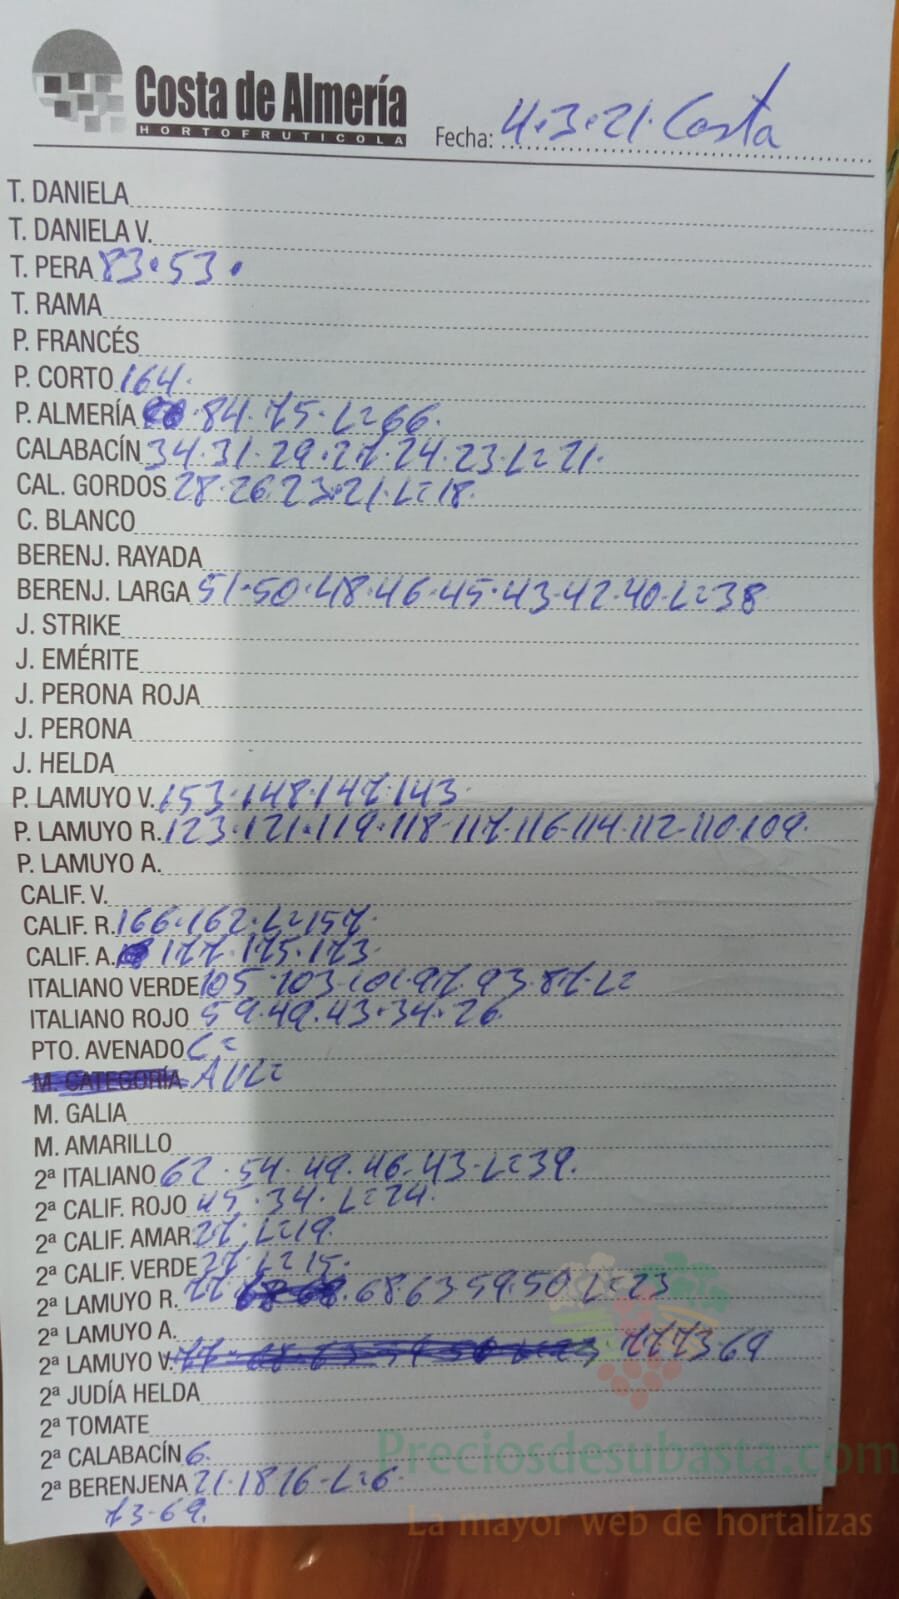 Costa de Almería
HORTOFRUTICOLA
Fecha: 4.3.21. Costa
T. DANIELA
T. DANIELA V.
T. PERA 83.53.
T. RAMA
P. FRANCÉS
P. CORTO 164.
P. ALMERÍA 84.75.L=66.
CALABACÍN 34.31.29.27.24.23.L=21.
CAL. GORDOS 28.26.23.21.L=18.
C. BLANCO
BERENJ. RAYADA
BERENJ. LARGA 51.50.48.46.45.43.42.40.L=38
J. STRIKE
J. EMÉRITE
J. PERONA ROJA
J. PERONA
J. HELDA
P. LAMUYO V. 153.148.147.143.
P. LAMUYO R. 123.121.119.118.117.116.114.112.110.109.
P. LAMUYO A.
CALIF. V.
CALIF. R. 166.162.L=157.
CALIF. A. 177.175.173
ITALIANO VERDE 105.103.101.97.93.87.L=
ITALIANO ROJO 59.49.43.34.26
PTO. AVENADO C=
M. CATEGORÍA
M. GALIA
M. AMARILLO
2ª ITALIANO 62.54.49.46.43.L=39.
2ª CALIF. ROJO 45.34.L=24.
2ª CALIF. AMAR. 27.L=19.
2ª CALIF. VERDE 27 L=15.
2ª LAMUYO R. 77 68.63.59.50.L=23
2ª LAMUYO A.
2ª LAMUYO V. 77 73 69
2ª JUDÍA HELDA
2ª TOMATE
2ª CALABACÍN 6.
2ª BERENJENA 21.18 16.L=6.
73-69.
Preciosdesubasta.com
La mayor web de hortalizas